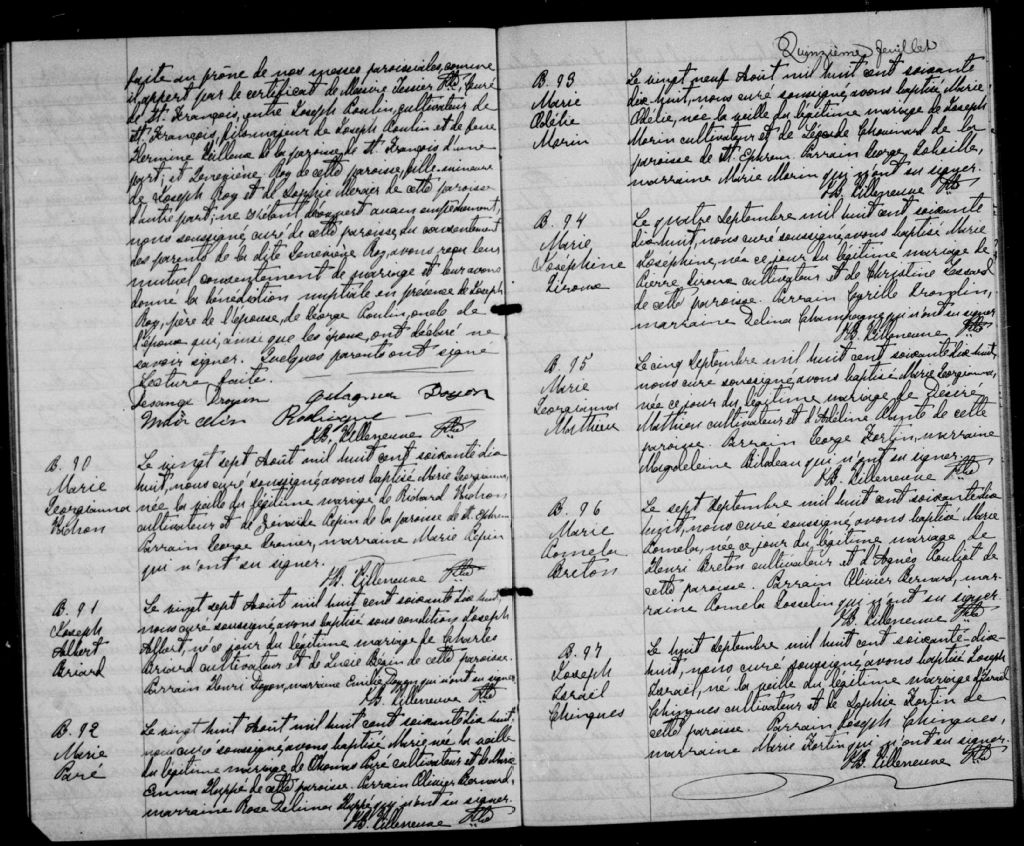 faite au prône de nos messes paroissiales, comme
il appert par le certificat de Messire Tessier Ptre, Curé
de St. François, entre Joseph Poulin, cultivateur de
St. François, fils majeur de Joseph Poulin et de feue
Hermine Veilleux de la paroisse de St. François d'une
part; et Geneviève Roy de cette paroisse, fille mineure
de Joseph Roy et de Sophie Mercier de cette paroisse
d'autre part; ne s'étant découvert aucun empêchement,
nous soussigné, curé de cette paroisse, du consentement
des parents de la dite Geneviève Roy, avons reçu leur
mutuel consentement de mariage et leur avons
donné la bénédiction nuptiale en présence de Joseph
Roy, père de l'épouse, de George Poulin, oncle de
l'époux qui, ainsi que les époux, ont déclaré ne
savoir signer. Quelques parents ont signé
Lecture faite.
Doyon
Marcelin Rodrigue
J.B. Villeneuve Ptre
B. 90
Marie
Georgianna
Le vingt sept Août mil huit cent soixante dix
huit, nous curé soussigné, avons baptisé Marie Georgianna,
née la veille du légitime mariage de Richard
cultivateur et de Zénaïde Pepin de la paroisse de St. Ephrem
Parrain George, marraine Marie Pepin
qui n'ont su signer.
J.B. Villeneuve Ptre
B. 91
Joseph
Albert
Briard
Le vingt sept Août mil huit cent soixante dix huit,
nous curé soussigné avons baptisé sous condition Joseph
Albert, né ce jour du légitime mariage de Charles
Briard cultivateur et de Lucie Bégin de cette paroisse.
Parrain Henri Doyon, marraine Emilie Doyon qui n'ont su signer
J.B. Villeneuve Ptre
B. 92
Marie
Paré
Le vingt huit Août mil huit cent soixante dix huit,
nous curé soussigné, avons baptisé Marie, née la veille
du légitime mariage de Thomas Paré cultivateur et de
Emma de cette paroisse. Parrain Olivier Bernard,
marraine Rose Delima qui n'ont su signer.
J.B. Villeneuve Ptre
Quinzième feuillet
B. 93
Marie
Odélie
Morin
Le vingt neuf Août mil huit cent soixante
dix-huit, nous curé soussigné, avons baptisé Marie
Odélie, née la veille du légitime mariage de Joseph
Morin cultivateur et de Chouinard de la
paroisse de St. Ephrem. Parrain George,
marraine Marie Morin qui n'ont su signer.
J.B. Villeneuve Ptre
B. 94
Marie
Joséphine
Giroux
Le quatre Septembre mil huit cent soixante
dix-huit, nous curé soussigné, avons baptisé Marie
Joséphine, née ce jour du légitime mariage de
Pierre Giroux cultivateur et de Christine Lessard
de cette paroisse. Parrain Cyrille,
marraine Delina Champagne qui n'ont su signer
J.B. Villeneuve Ptre
B. 95
Marie
Georgianna
Mathieu
Le cinq Septembre mil huit cent soixante dix huit,
nous curé soussigné, avons baptisé Marie Georgianna,
née ce jour du légitime mariage de Désiré
Mathieu cultivateur et d'Adéline Plante de cette
paroisse. Parrain George Fortin, marraine
Magdeleine Bilodeau qui n'ont su signer.
J.B. Villeneuve Ptre
B. 96
Marie
Romela
Breton
Le sept Septembre mil huit cent soixante dix
huit, nous curé soussigné, avons baptisé Marie
Romela, née ce jour du légitime mariage de
Henri Breton cultivateur et d'Agnès Pouliot de
cette paroisse. Parrain Olivier Bernard, mar-
raine Romela Gosselin qui n'ont su signer.
J.B. Villeneuve Ptre
B. 97
Joseph
Israël
Chingues
Le huit Septembre mil huit cent soixante-dix-
huit, nous curé soussigné, avons baptisé Joseph
Israël, né la veille du légitime mariage d'Israël
Chingues cultivateur et de Sophie Fortin de
cette paroisse. Parrain Joseph Chingues,
marraine Marie Fortin qui n'ont su signer.
J.B. Villeneuve Ptre